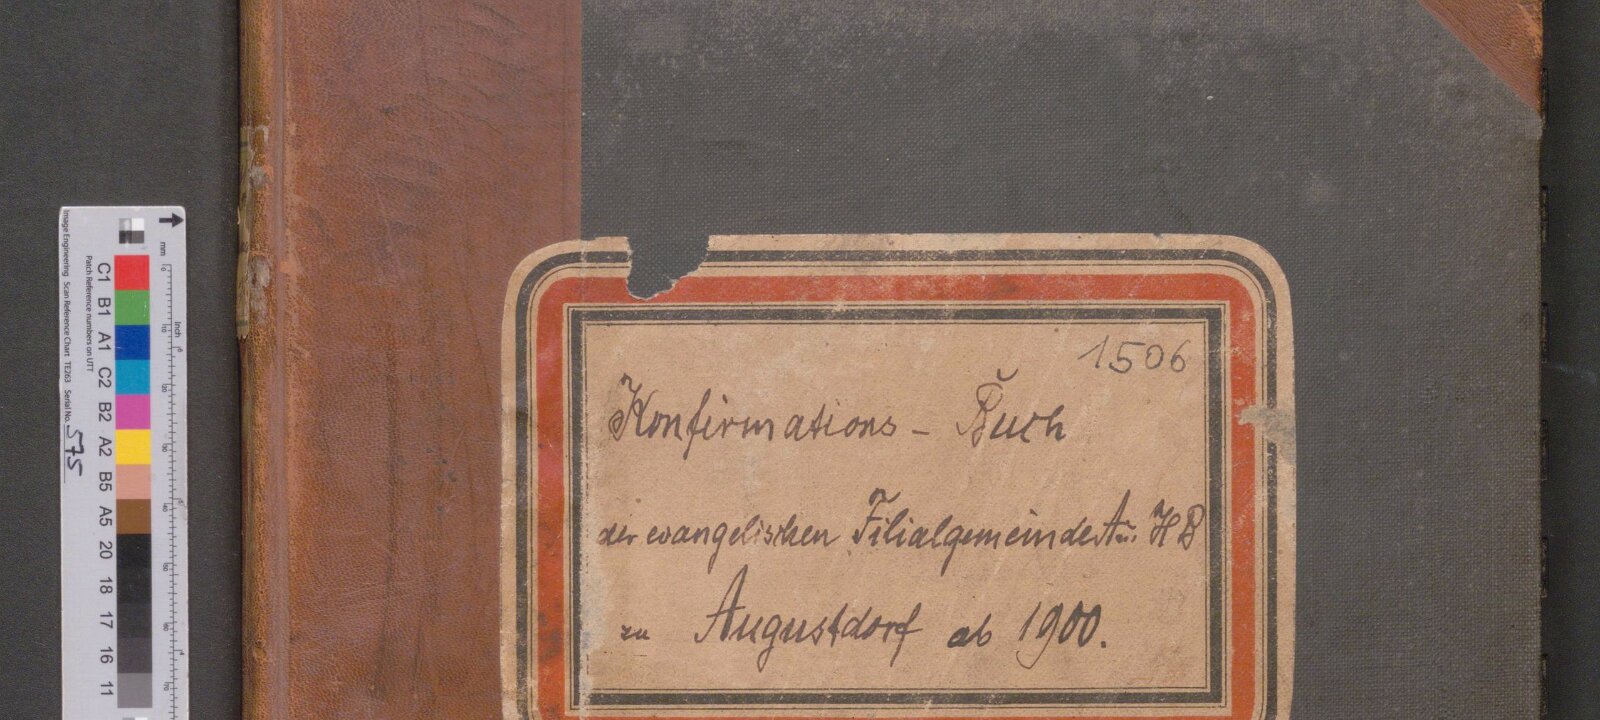 1506
Konfirmations - Buch
der evangelischen Filialgemeinde A u. HB
zu Augustdorf ab 1900.
Image Engineering Scan Reference Chart TE263 Serial No. 575
Patch Reference numbers on UTT
C1 B1 A1 C2 B2 A2 B5 A5 20 18 17 16 11
mm
inch